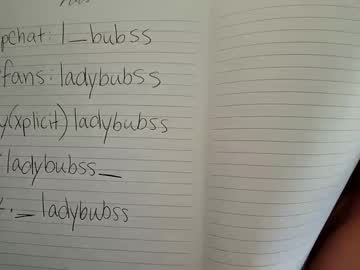 pchat: l_bubss
fans: ladybubss
y(xplicit) ladybubss
ladybubss_
. _ ladybubss